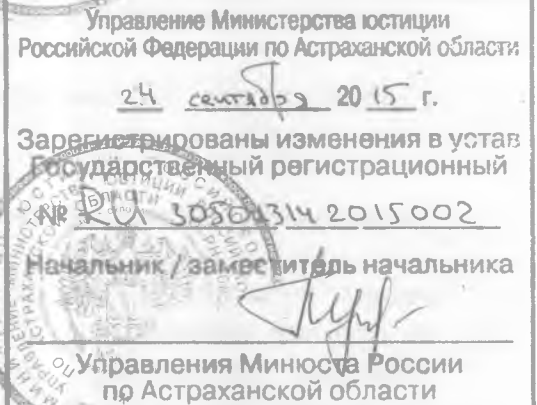 Управление Министерства юстиции
Российской Федерации по Астраханской области
24 сентября 2015 г.
Зарегистрированы изменения в устав
Государственный регистрационный
№ RU 305043142015002
Начальник / заместитель начальника
Управления Минюста России
по Астраханской области